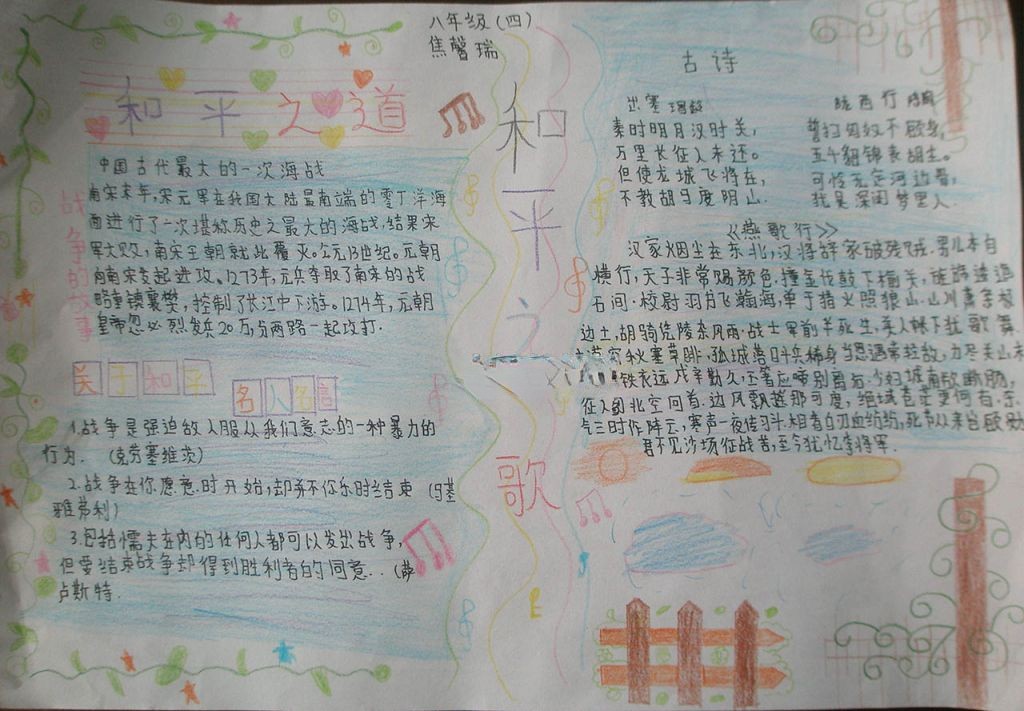 八年级(四)
焦馨瑞
和平之道
中国古代最大的一次海战
南宋末年,宋元军在我国大陆最南端的零丁洋海
面进行了一次堪称历史之最大的海战,结果宋
军大败,南宋王朝就此覆灭。公元13世纪。元朝
向南宋发起进攻。1273年,元兵夺取了南宋的战
略重镇襄樊,控制了长江中下游。1274年,元朝
皇帝忽必烈发兵20万,分两路一起攻打.
战争的故事
关于和平
名人名言
1.战争是强迫敌人服从我们意志的一种暴力的
行为. (克劳塞维茨)
2.战争在你愿意时开始,却并不你乐时结束 (马基
雅弗利)
3.包括懦夫在内的任何人都可以发出战争,
但要结束战争却得到胜利者的同意.. (萨
卢斯特.
和平之歌
古诗
出塞
秦时明月汉时关,
万里长征人未还。
但使龙城飞将在,
不教胡马度阴山.
陇西行 陈陶
誓扫匈奴不顾身,
五千貂锦丧胡尘。
可怜无定河边骨,
犹是深闺梦里人.
《燕歌行》
汉家烟尘在东北,汉将辞家破残贼.男儿本自
横行,天子非常赐颜色.摐金伐鼓下榆关,旌旆逶迤
石间.校尉羽书飞瀚海,单于猎火照狼山.山川萧条极
边土,胡骑凭陵杂风雨.战士军前半死生,美人帐下犹歌舞.
穷秋塞草腓,孤城落日斗兵稀.身当恩遇常轻敌,力尽关山未
铁衣远戍辛勤久,玉箸应啼别离后.少妇城南欲断肠,
征人蓟北空回首.边风飘飘那可度,绝域苍茫更何有.杀
气三时作阵云,寒声一夜传刁斗.相看白刃血纷纷,死节从来岂顾勋
君不见沙场征战苦,至今犹忆李将军.